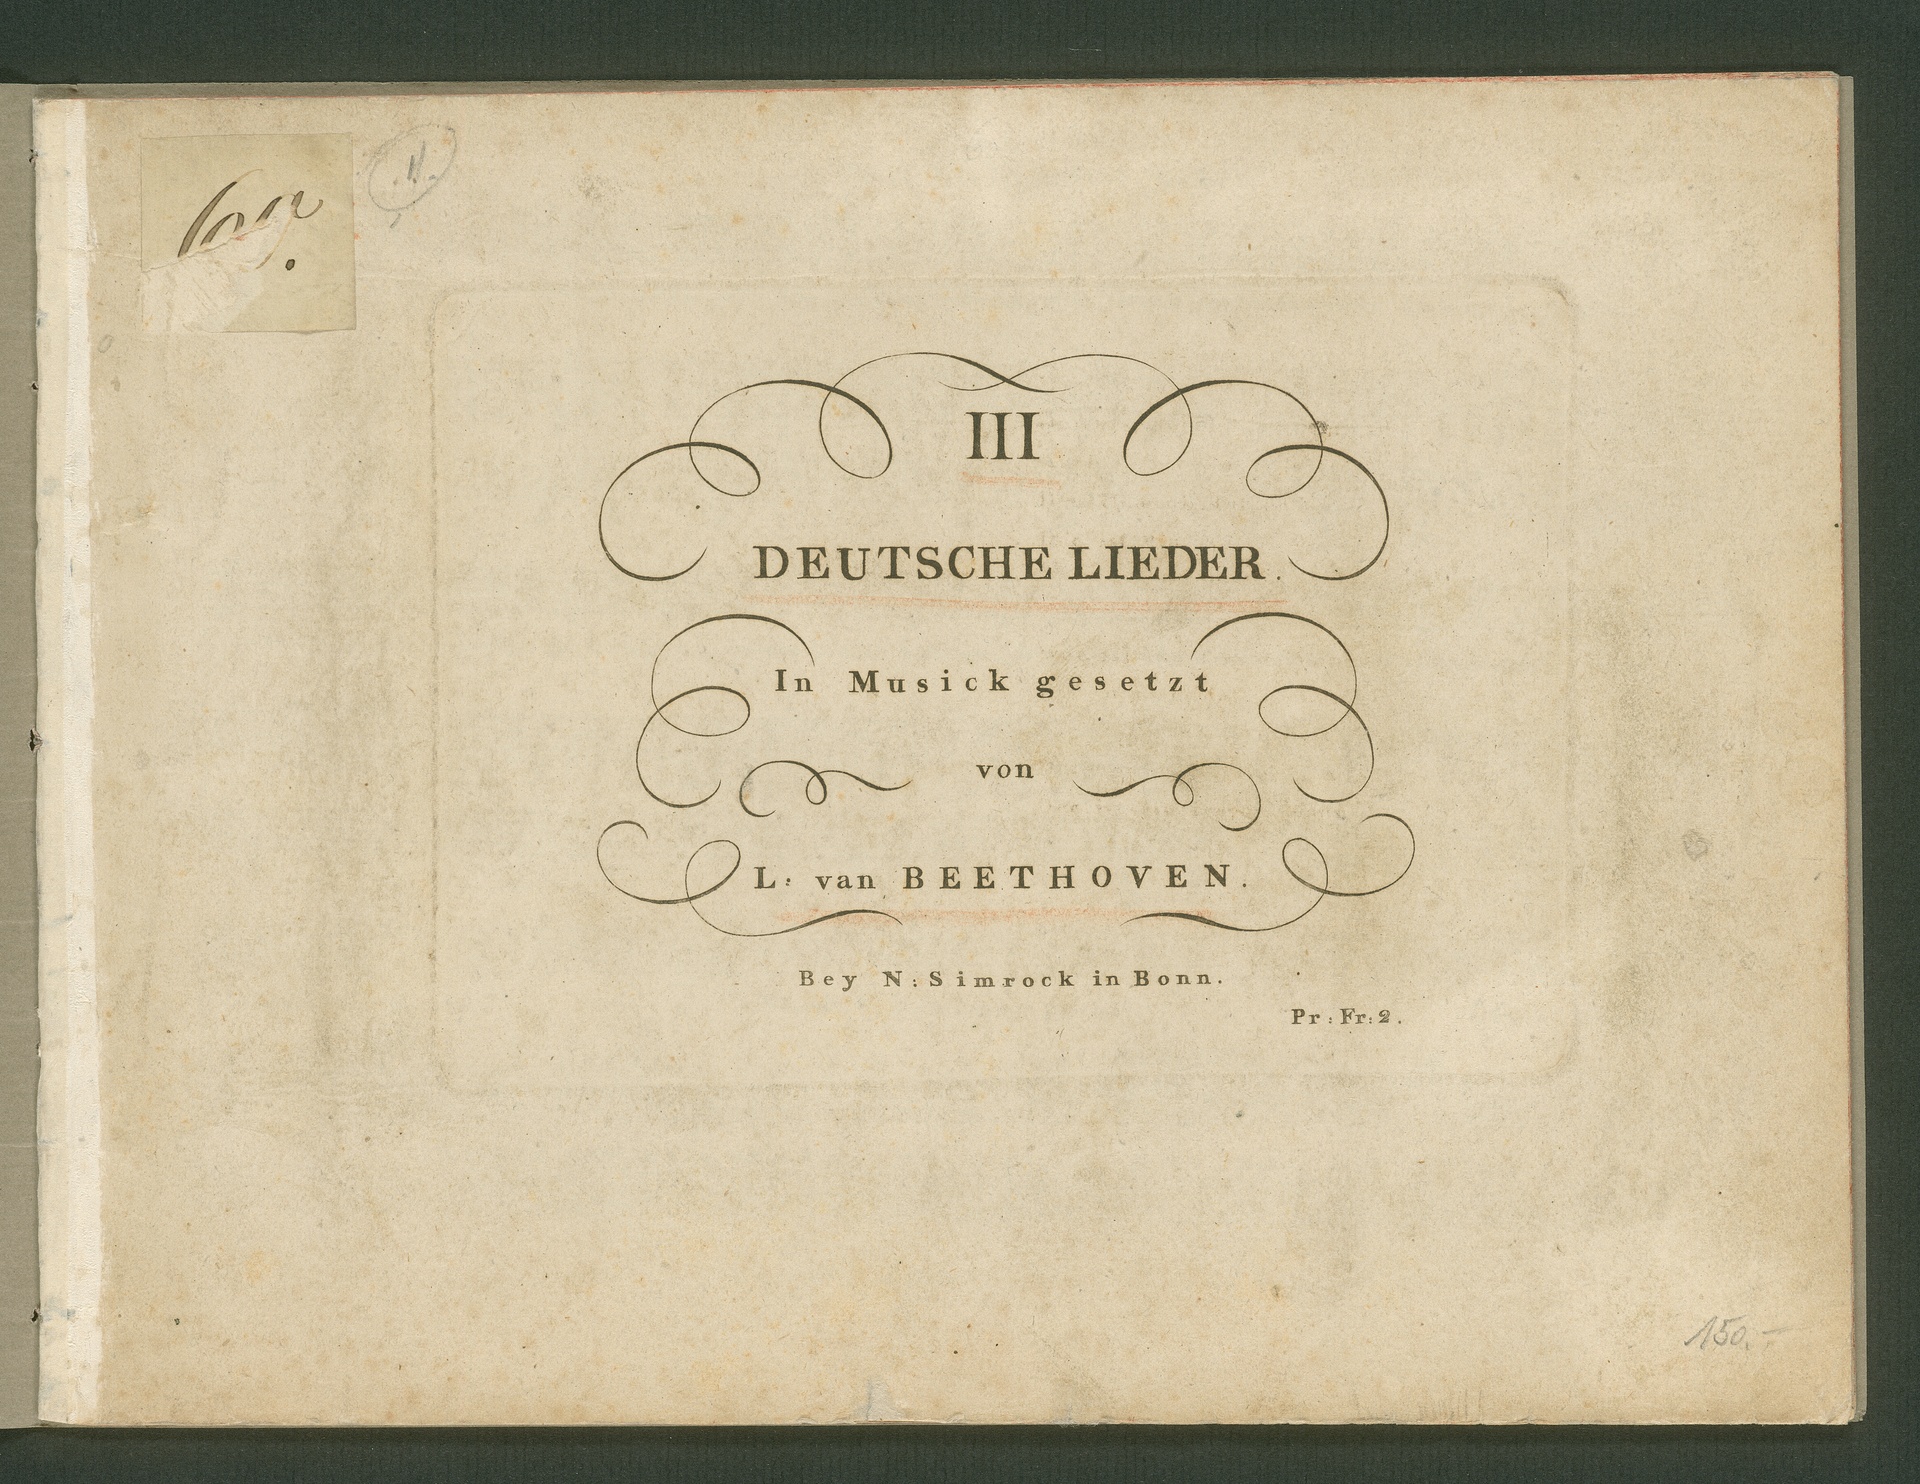 III
DEUTSCHE LIEDER.
In Musick gesetzt
von
L: van BEETHOVEN.
Bey N: Simrock in Bonn.
Pr: Fr: 2.
150.-